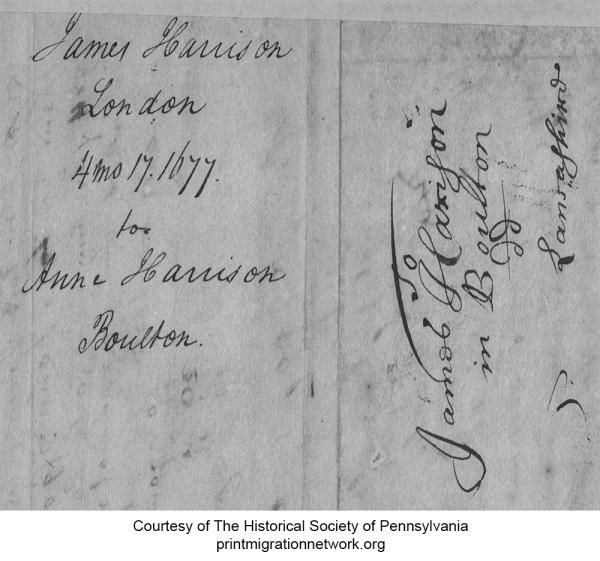 James Harrison
London
4 mo 17. 1677.
to
Anne Harrison
Boulton.
To
James Harison
in Boulton
Lancashire
Courtesy of The Historical Society of Pennsylvania
printmigrationnetwork.org